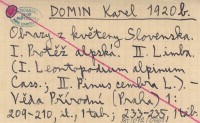 DOMIN Karel 1920b.
Obrazy z květeny Slovenska.
I. Protěž alpská. II. Limba.
(I. Leontopodium alpinum
Cass., II. Pinus cembra L.).
Věda Přírodní (Praha) 1:
209-210, il., 1 tab.; 233-235, 1 tab.